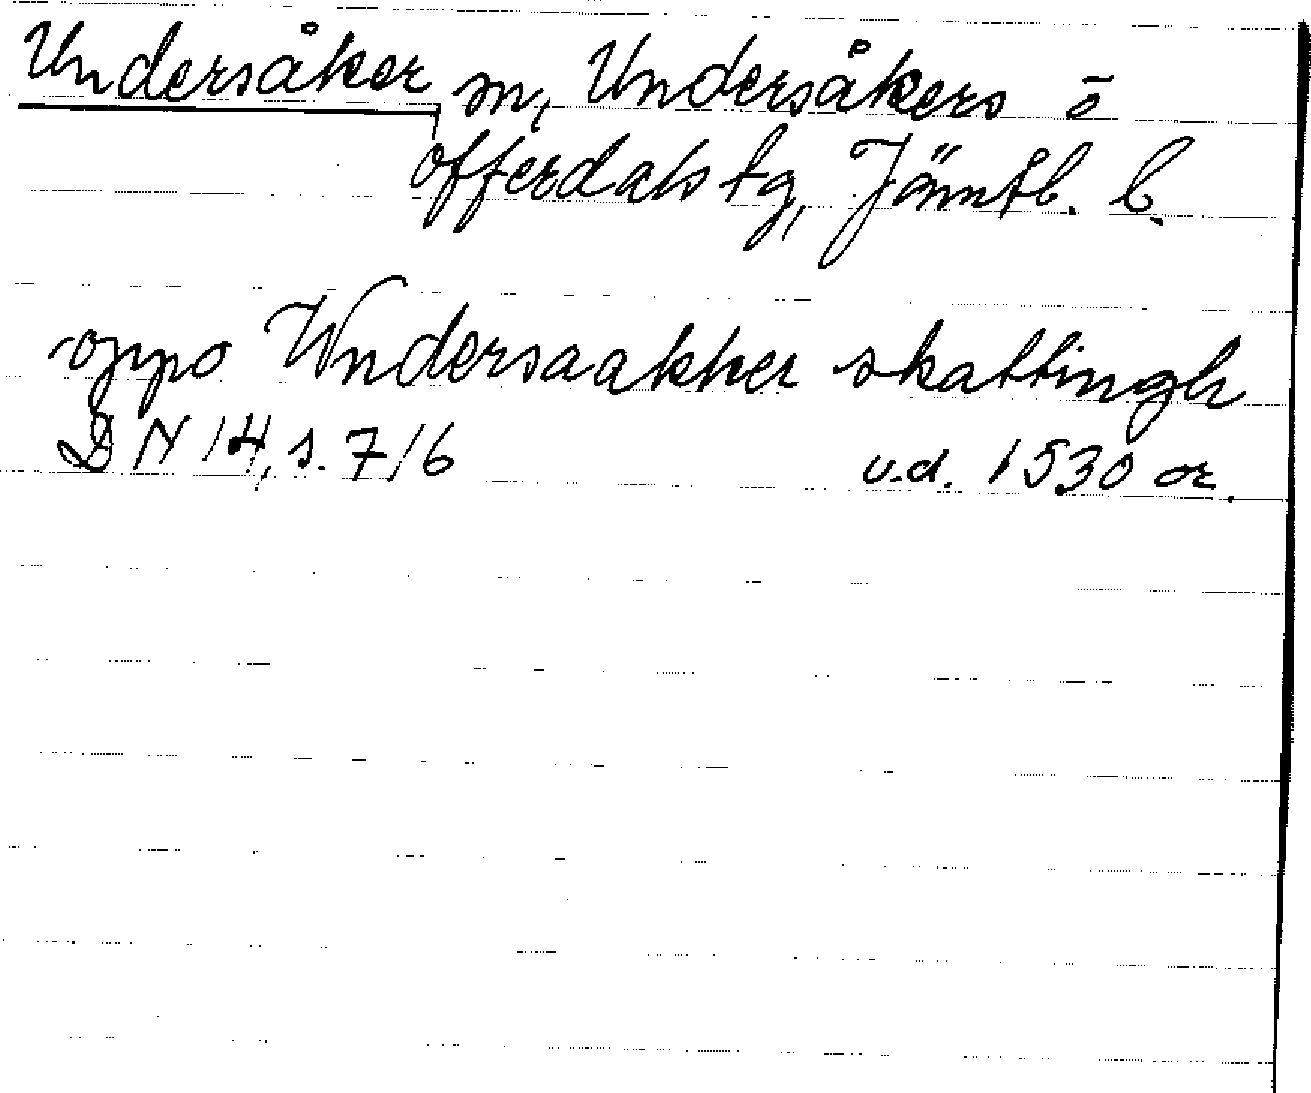 Undersåker sn, Undersåkers o
Offerdals tg, Jämtl. l.
oppo Wndersaakker skattingh
DN 14, s. 716 u.d. 1530 or.